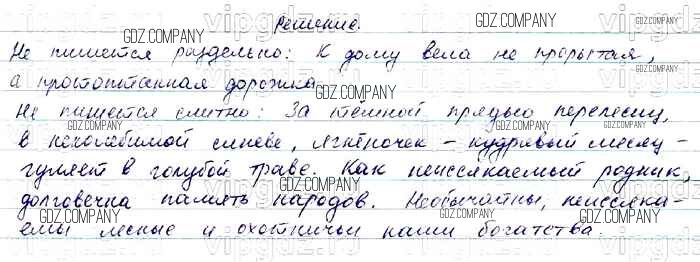 Решение.
Не пишется раздельно: К дому вела не прорытая,
а протоптанная дорожка.
Не пишется слитно: За тёмной прядью перелесиц,
в неколебимой синеве, ягнёночек - кудрявый месяц
гуляет в голубой траве. Как неиссякаемый родник,
долговечна память народов. Необычайны, неиссяка-
емы лесные и охотничьи наши богатства.
GDZ.COMPANY
GDZ.COMPANY
GDZ.COMPANY
GDZ.COMPANY
GDZ.COMPANY
GDZ.COMPANY
GDZ.COMPANY
GDZ.COMPANY
GDZ.COMPANY
GDZ.COMPANY
GDZ.COMPANY
GDZ.COMPANY